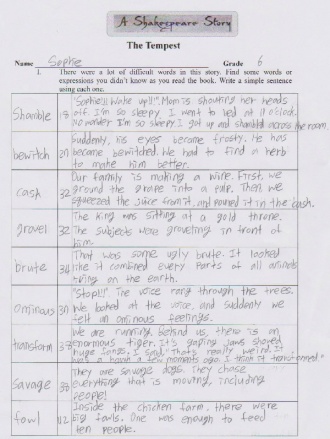 A Shakespeare Story
The Tempest
Name Sophie Grade 6
1. There were a lot of difficult words in this story. Find some words or
expressions you didn't know as you read the book. Write a simple sentence
using each one.
"Sophie!!! Wake up!!!". Mom is shouting her heads
Shamble 18 off. I'm so sleepy. I went to bed at 11 o'clock.
No wonder I'm so sleepy. I got up and shambled across the room
Suddenly, his eyes became frosty. He has
bewitch 20 became bewitched. We had to find a herb
to make him better.
Our family is making a wine. First, we
cask 32 ground the grape into a pulp. Then we
squeezed the juice from it, and poured it in the cash.
The King was sitting at a gold throne.
grovel 32 The subjects were groveling in front of
him.
That was some ugly brute. It looked
brute 34 like it combined every parts of all animals
living on the earth.
"Stop!!!". The voice rang through the trees.
ominous We looked at the voice, and suddenly we
felt an ominous feelings.
We are running. Behind us, there is an
transform enormous tiger. It's gaping jaws showed
huge fangs. I said, "That's really weird. It
was a a few moments ago. I think it transformed"
They are savage dogs. They chase
savage everything that is moving, including
people!
Inside the chicken farm, there were
fowl 112 big fowls. One was enough to feed
ten people.